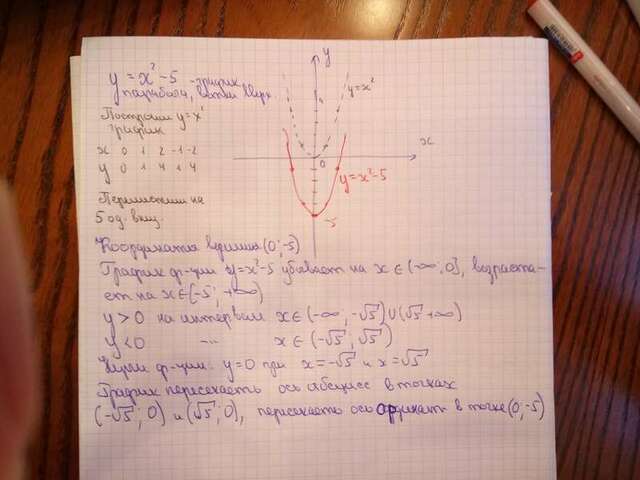 y = x² - 5 - график
парабола, ветви вверх.
Построим y = x²
график
x 0 1 2 -1 -2
y 0 1 4 1 4
Переместим на
5 ед. вниз.
y
y = x²
x
0
y = x² - 5
-5
Координата вершины (0; -5)
График ф-ции y = x² - 5 убывает на x ∈ (-∞; 0], возраста-
ет на x ∈ [-5; +∞)
y > 0 на интервале x ∈ (-∞; -√5) U (√5 +∞)
y < 0 -"- x ∈ (-√5; √5)
Нули ф-ции: y = 0 при x = -√5 и x = √5
График пересекаеть ось абсцисс в точках
(-√5; 0) и (√5; 0), пересекаеть ось ординат в точке (0; -5)